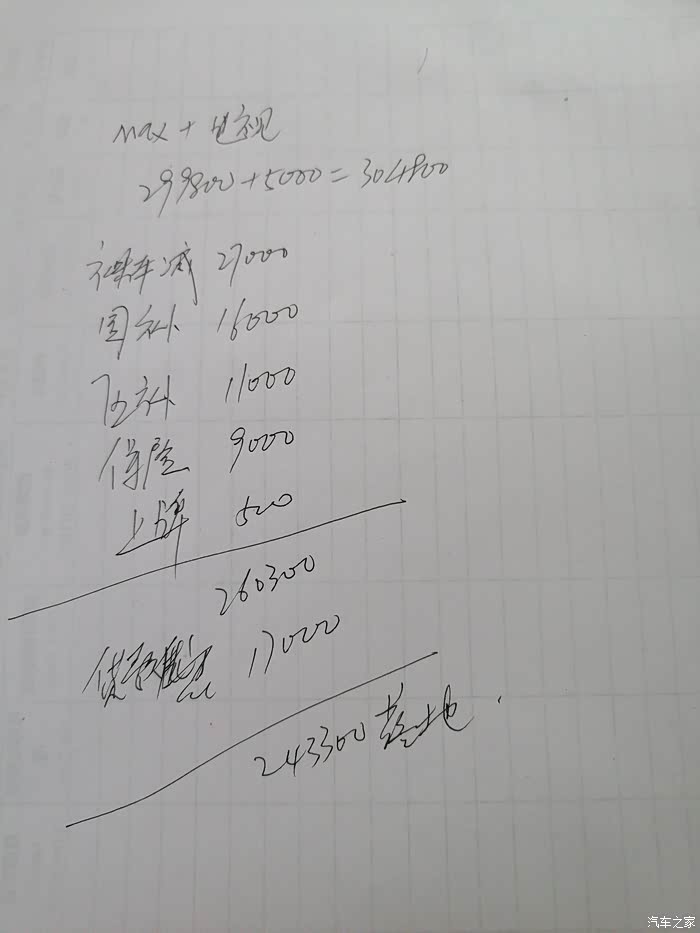 max + 电视
299800+5000=304800
裸车减 27000
国补 16000
补 11000
保险 9000
上牌 500
260300
贷款 17000
243300 落地.
汽车之家